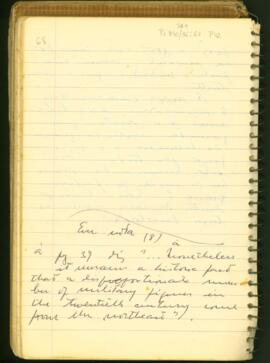 68
Em nota (8) a
à pg 39 diz "... Nonetheless
it remains a historic fact
that a disproportionate num
ber of military figures in
the twentieth century come
from the northeast").